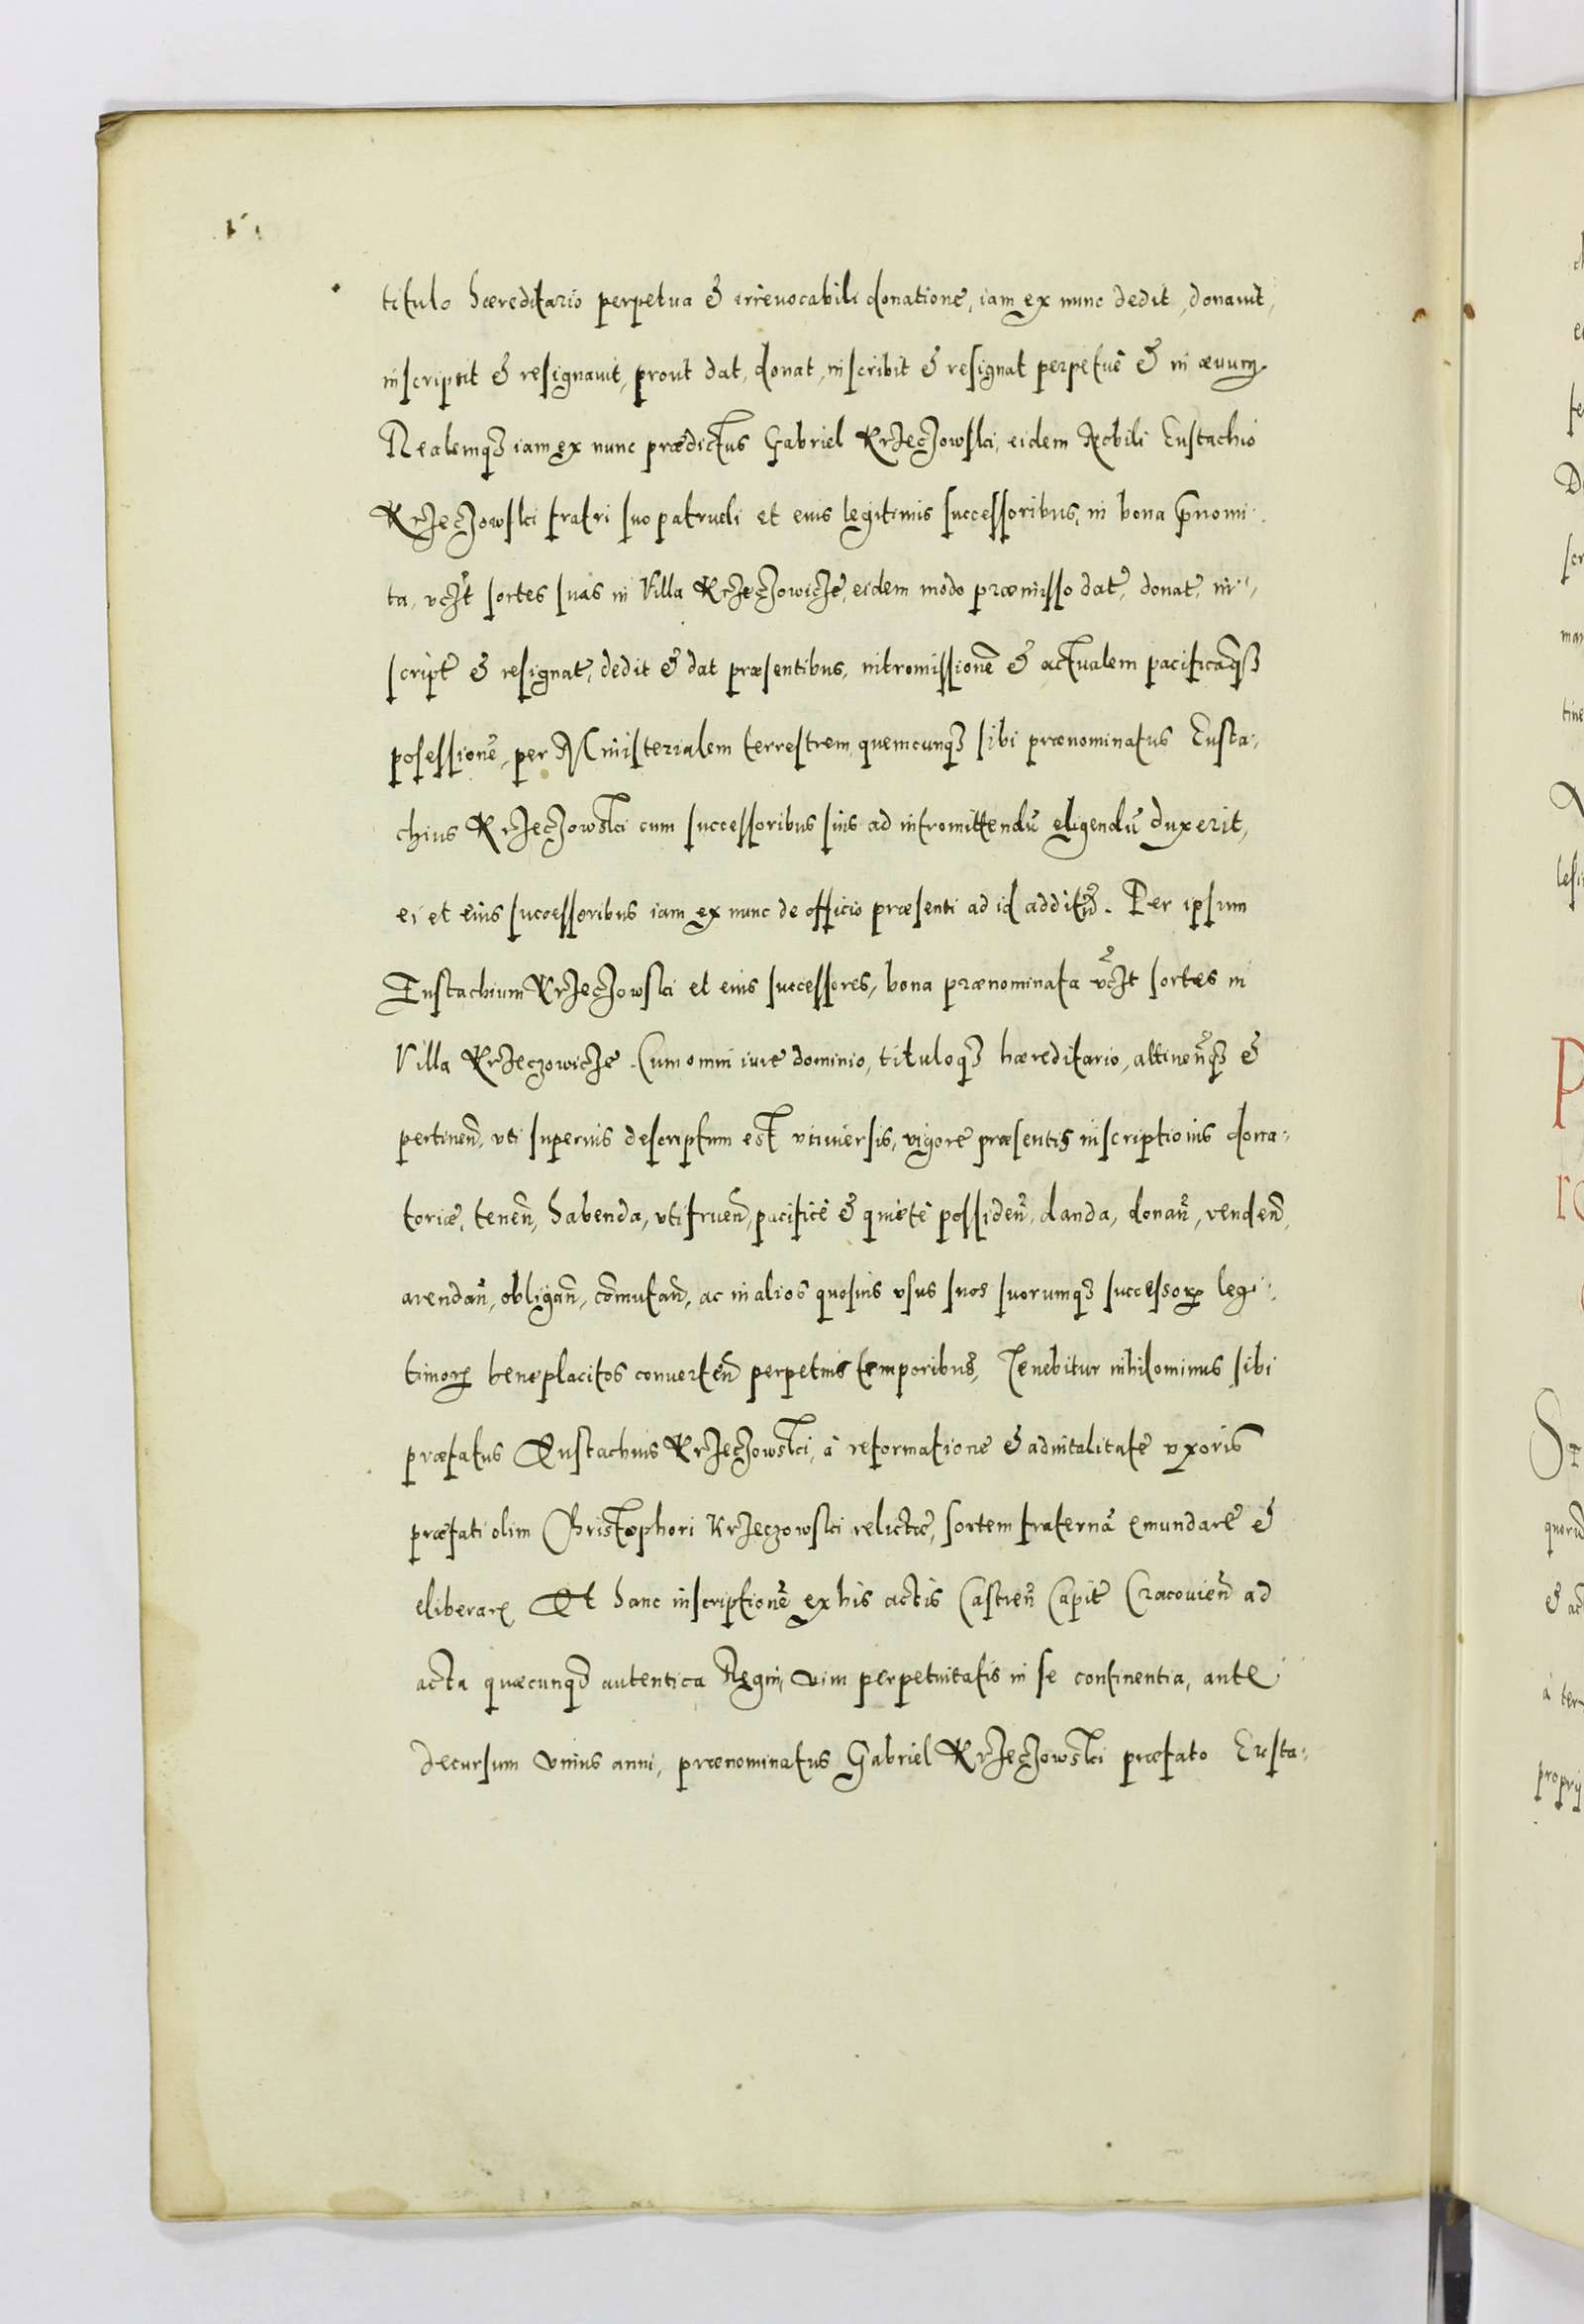 titulo hæreditario perpetua & irreuocabili donatione, iam ex nunc dedit, donauit,
inscripsit & resignauit, prout dat, donat, inscribit & resignat perpetuè & in æuum.
Realemqȝ iam ex nunc prædictus Gabriel Krzeczowski, eidem Nobili Eustachio
Krzeczowski fratri suo patrueli et eius legitimis successoribus, in bona p̄nomi-
ta, vcz̃t sortes suas in Villa Krzeczowicze, eidem modo præmisso dat̃, donat̃, in-
script̃ & resignat̃, dedit & dat præsentibus, intromissionẽ & actualem pacificãqȝ
posessionẽ, per Ministerialem terrestrem quemcunqȝ sibi prænominatus Eusta-
chius Krzeczowski cum successoribus suis ad intromittendũ eligendũ duxerit,
ei et eius successoribus iam ex nunc de officio præsenti ad id addit̃ũ. Per ipsum
Eustachium Krzeczowski et eius successores, bona prænominata vcz̃t sortes in
Villa Krzeczowicze. Cum omni iure dominio, tituloqȝ hæreditario, attinen̄qȝ &
pertinen̄, vti superius descriptum est vniuersis, vigore præsentis inscriptionis dona-
toriæ, tenen̄, habenda, vtifruen̄, pacificè & quietè possiden̄, danda, donan̄, venden̄,
arendan̄, obligan̄, com̄utan̄, ac in alios quosuis vsus suos suorumqȝ successoꝝ legi-
timoꝝ beneplacitos conuerten̄ perpetuis temporibus, Tenebitur nihilominus sibi
præfatus Eustachius Krzeczowski, à reformatione & aduitalitate vxoris
præfati olim Christophori Krzeczowski relictæ, sortem fraternã emundare &
eliberare. Et hanc inscriptionẽ ex his actis Castren̄ Capit̃ Cracouien̄ ad
acta quæcunqȝ autentica Regni, vim perpetuitatis in se continentia, ante
decursum vnius anni, prænominatus Gabriel Krzeczowski præfato Eusta-